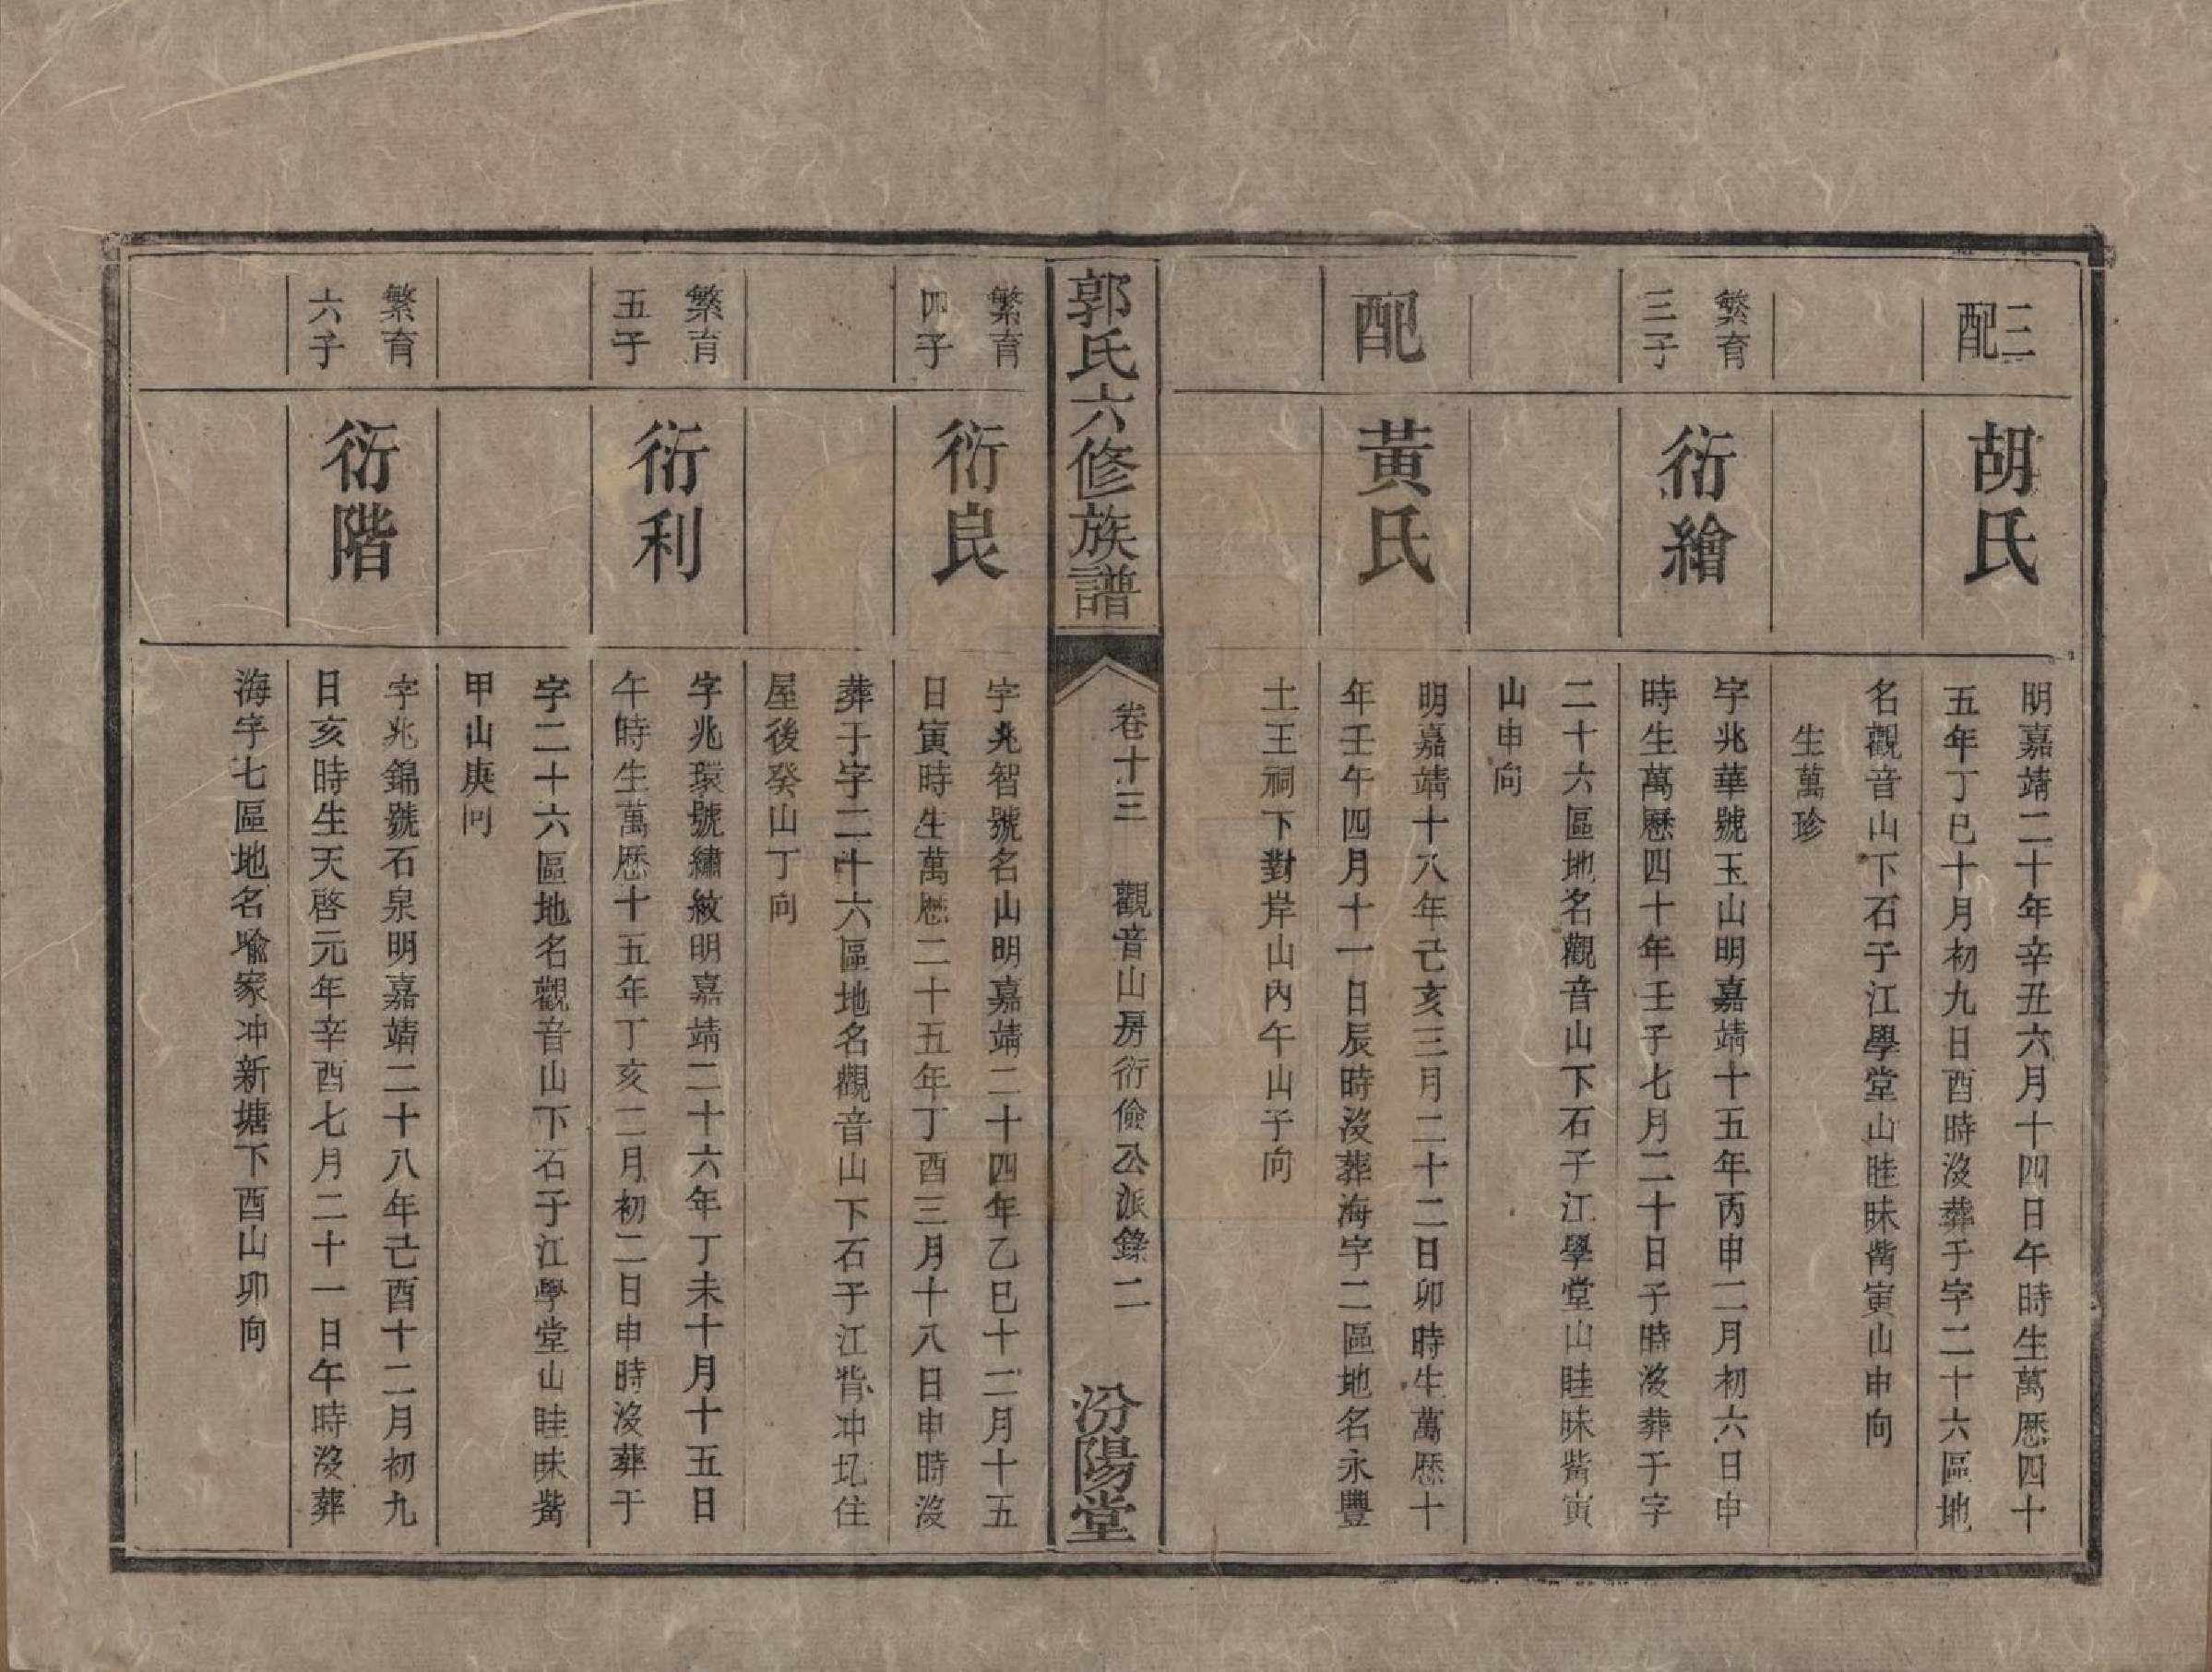 三配
胡氏
明嘉靖二十年辛丑六月十四日午時生萬厯四十
五年丁巳十月初九日酉時沒葬于字二十六區地
名觀音山下石子江學堂山眭昧嘴寅山申向
生萬珍
繁育
三子
衍繪
字兆華號玉山明嘉靖十五年丙申二月初六日申
時生萬厯四十年壬子七月二十日子時沒葬于字
二十六區地名觀音山下石子江學堂山眭昧嘴寅
山申向
配
黃氏
明嘉靖十八年己亥三月二十二日卯時生萬厯十
年壬午四月十一日辰時沒葬海字二區地名永豐
土王祠下對岸山內午山子向
郭氏六修族譜
卷十三 觀音山房衍儉公派錄 二
汾陽堂
繁育
四子
衍良
字兆智號名山明嘉靖二十四年乙巳十二月十五
日寅時生萬厯二十五年丁酉三月十八日申時沒
葬于字二十六區地名觀音山下石子江背冲圠住
屋後癸山丁向
繁育
五子
衍利
字兆環號繡紋明嘉靖二十六年丁未十月十五日
午時生萬厯十五年丁亥二月初二日申時沒葬于
字二十六區地名觀音山下石子江學堂山眭昧嘴
甲山庚向
繁育
六子
衍階
字兆錦號石泉明嘉靖二十八年己酉十二月初九
日亥時生天啓元年辛酉七月二十一日午時沒葬
海字七區地名喻家冲新塘下酉山卯向